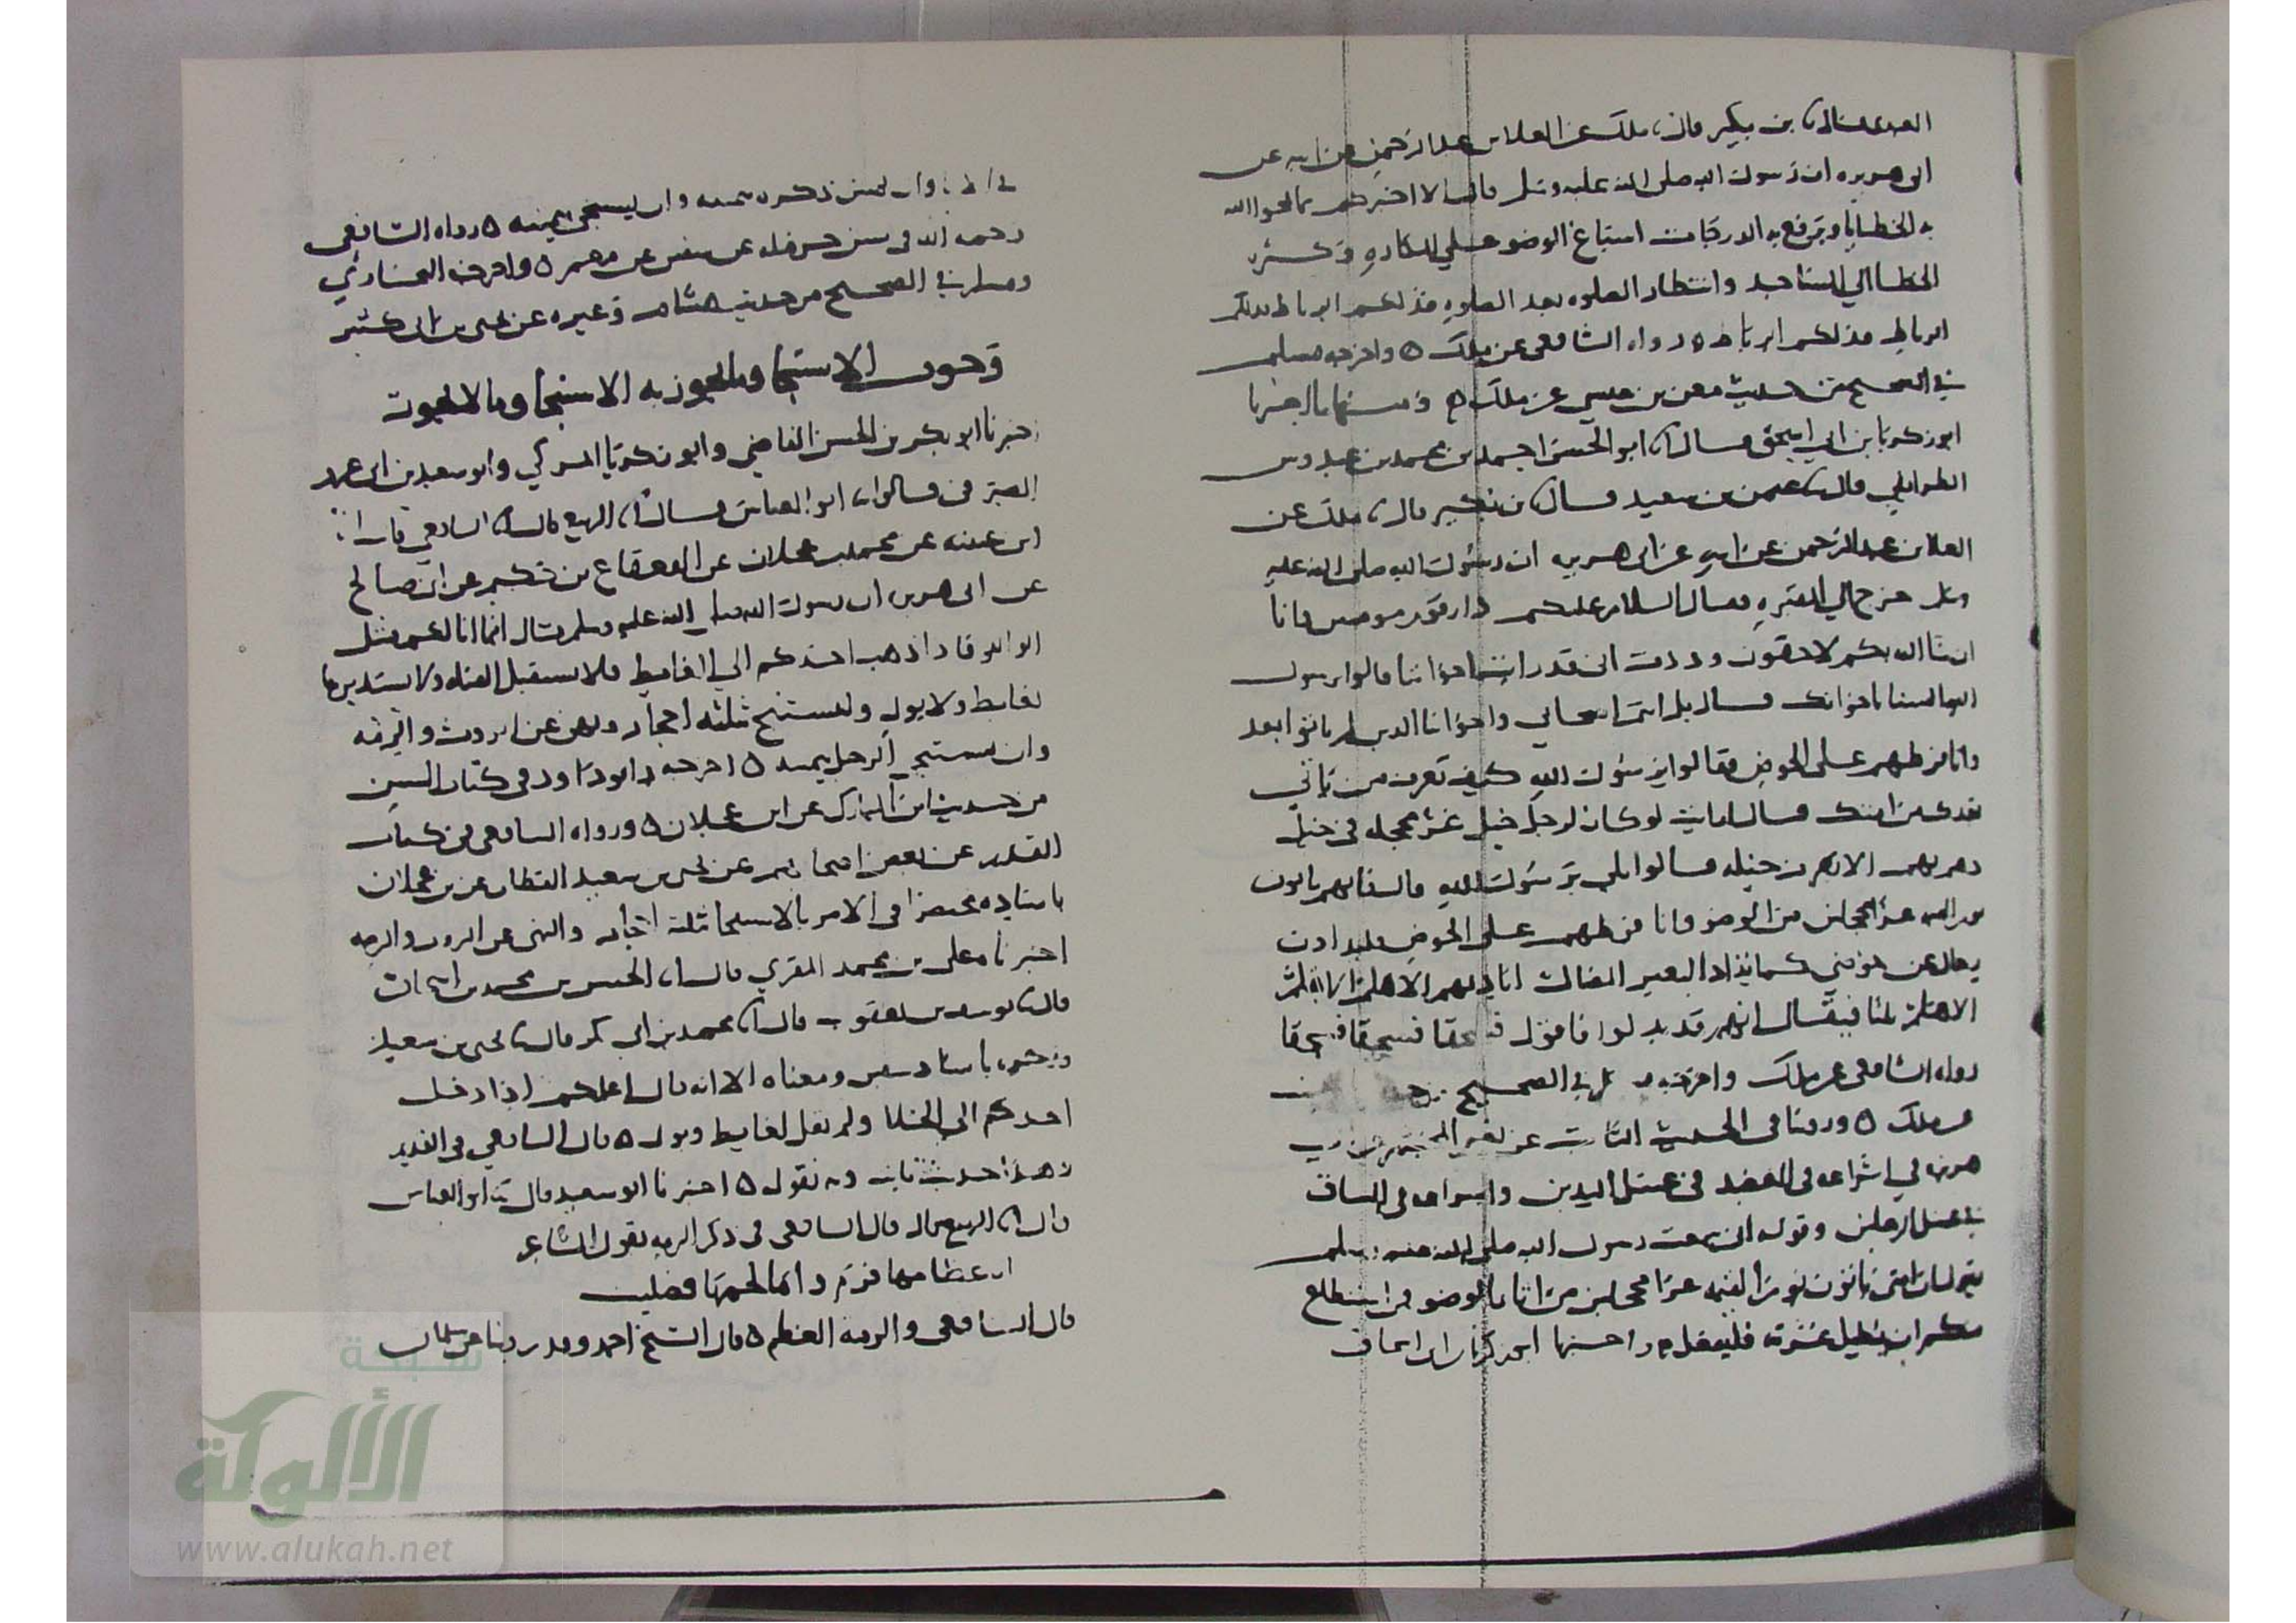 ابن بكير قال مالك عن العلا بن عبد الرحمن عن ابيه عن
ابى هريره ان رسول الله صلى الله عليه وسلم قال الا اخبركم بما يمحوا الله
به الخطايا ويرفع به الدرجات اسباغ الوضو على المكاره وكثره
الخطا الي المساجد وانتظار الصلوه بعد الصلوه فذلكم الرباط فذلكم
الرباط فذلكم الرباط ه رواه الشافعى عن ملك ه واخرجه مسلم
في الصحيح من حديث معن بن عيسي عن ملك ه
ابو زكريا بن ابي اسحق قال ابو الحسن احمد بن محمد بن عبدوس
الطرايفي قال عثمن بن سعيد قال بن بكير قال ملك عن
العلا بن عبد الرحمن عن ابيه عن ابى هريره ان رسول الله صلى الله عليه
وسلم خرج الي المقبره فقال السلام عليكم دار قوم مومنين وانا
ان شا الله بكم لاحقون وددت انى قد رايت اخواننا قالوا يرسول
الله السنا باخوانك قال بل انتم اصحابي واخواننا الذين لم ياتوا بعد
وانا فرطهم على الحوض فقالوا يرسول الله كيف تعرف من ياتي
بعدك من امتك قال ارايت لو كان لرجل خيل غر محجله فى خيل
دهم بهم الا يعرف خيله قالوا بلي يرسول الله قال فانهم ياتون
يوم القيمه غرا محجلين من الوضو وانا فرطهم على الحوض فليذادن
رجال عن حوضي كما يذاد البعير الضال اناديهم الا هلم الا هلم
الا هلم ثلثا فيقال انهم قد بدلوا فاقول فسحقا فسحقا فسحقا
رواه الشافعى عن ملك واخرجه في الصحيح
ملك ه وروينا فى الحديث الثابت عن نعيم
هريره في اشراعه فى العضد فى غسل اليدين واشراعه فى الساق
في غسل الرجلين وقوله انى سمعت رسول الله صلى الله عليه وسلم
يقول ان امتى ياتون يوم القيمه غرا محجلين من اثار الوضو فمن استطاع
منكم ان يطيل غرته فليفعل ه اخبرنا ابو زكريا بن ابى اسحاق
وان يمس ذكره بيمينه وان يستنجي بيمينه ه رواه الشافعى
رحمه الله فى سنن حرمله عن سفين عن معمر ه واخرجه البخاري
ومسلم في الصحيح من حديث هشام وغيره عن يحيى بن ابى كثير
وجوب الاستنجا وما يجوز به الاستنجا وما لا يجوز
اخبرنا ابو بكر بن الحسن القاضي وابو زكريا المزكي وابو سعيد بن ابى عمرو
الصيرفى قالوا ابو العباس قال الربيع قال الشافعي قال
ابن عيينه عن محمد بن عجلان عن القعقاع بن حكيم عن ابى صالح
عن ابى هريره ان رسول الله صلى الله عليه وسلم قال انما انا لكم مثل
الوالد فاذا ذهب احدكم الي الغايط فلا يستقبل القبله ولا يستدبرها
لغايط ولا بول وليستنج بثلثه احجار ونهى عن الروث والرمه
وان يستنجي الرجل بيمينه ه اخرجه ابو داود فى كتاب السنن
من حديث ابن المبارك عن ابن عجلان ه ورواه الشافعى فى كتاب
القديم عن بعض اصحابهم عن يحيى بن سعيد القطان عن بن عجلان
باسناده مختصرا فى الامر بالاستنجا بثلثه احجار والنهى عن الروث والرمه
اخبرنا على بن محمد المقري قال الحسن بن محمد بن اسحاق
قال يوسف بن يعقوب قال محمد بن ابى بكر قال يحيى بن سعيد
باسناده ومعناه الا انه قال اعلمكم اذا دخل
احدكم الي الخلا ولم يقل لغايط وبول ه قال الشافعى فى القديم
هذا حديث ثابت وبه نقول ه اخبرنا ابو سعيد قال ابو العباس
قال الربيع قال قال الشافعى فى ذكر الرمه يقول الشاعر
اما عظامها فرم واما لحمها فصليب
قال الشافعى والرمه العظم ه قال الشيخ احمد وقد روينا عن سلمان
شبكة
الألوكة
www.alukah.net